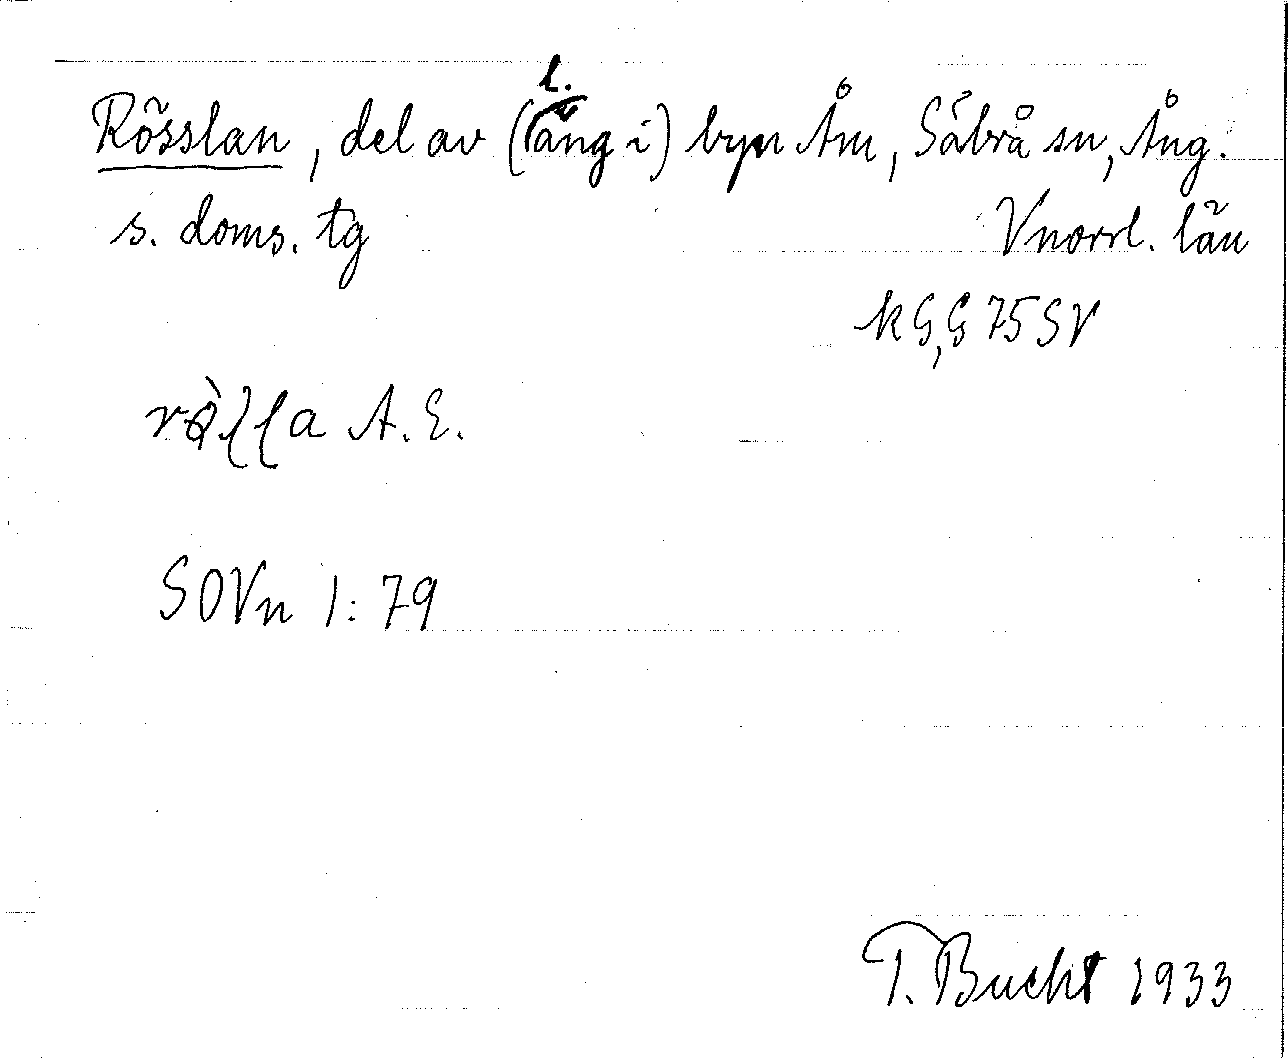 Rösslan, del av (l. äng i) byn Åm, Säbrå sn, Ång.
s. doms. tg Vnorrl. län
kG,G 75 SV
A. E.
SOVn 1:79
T. Bucht 1933